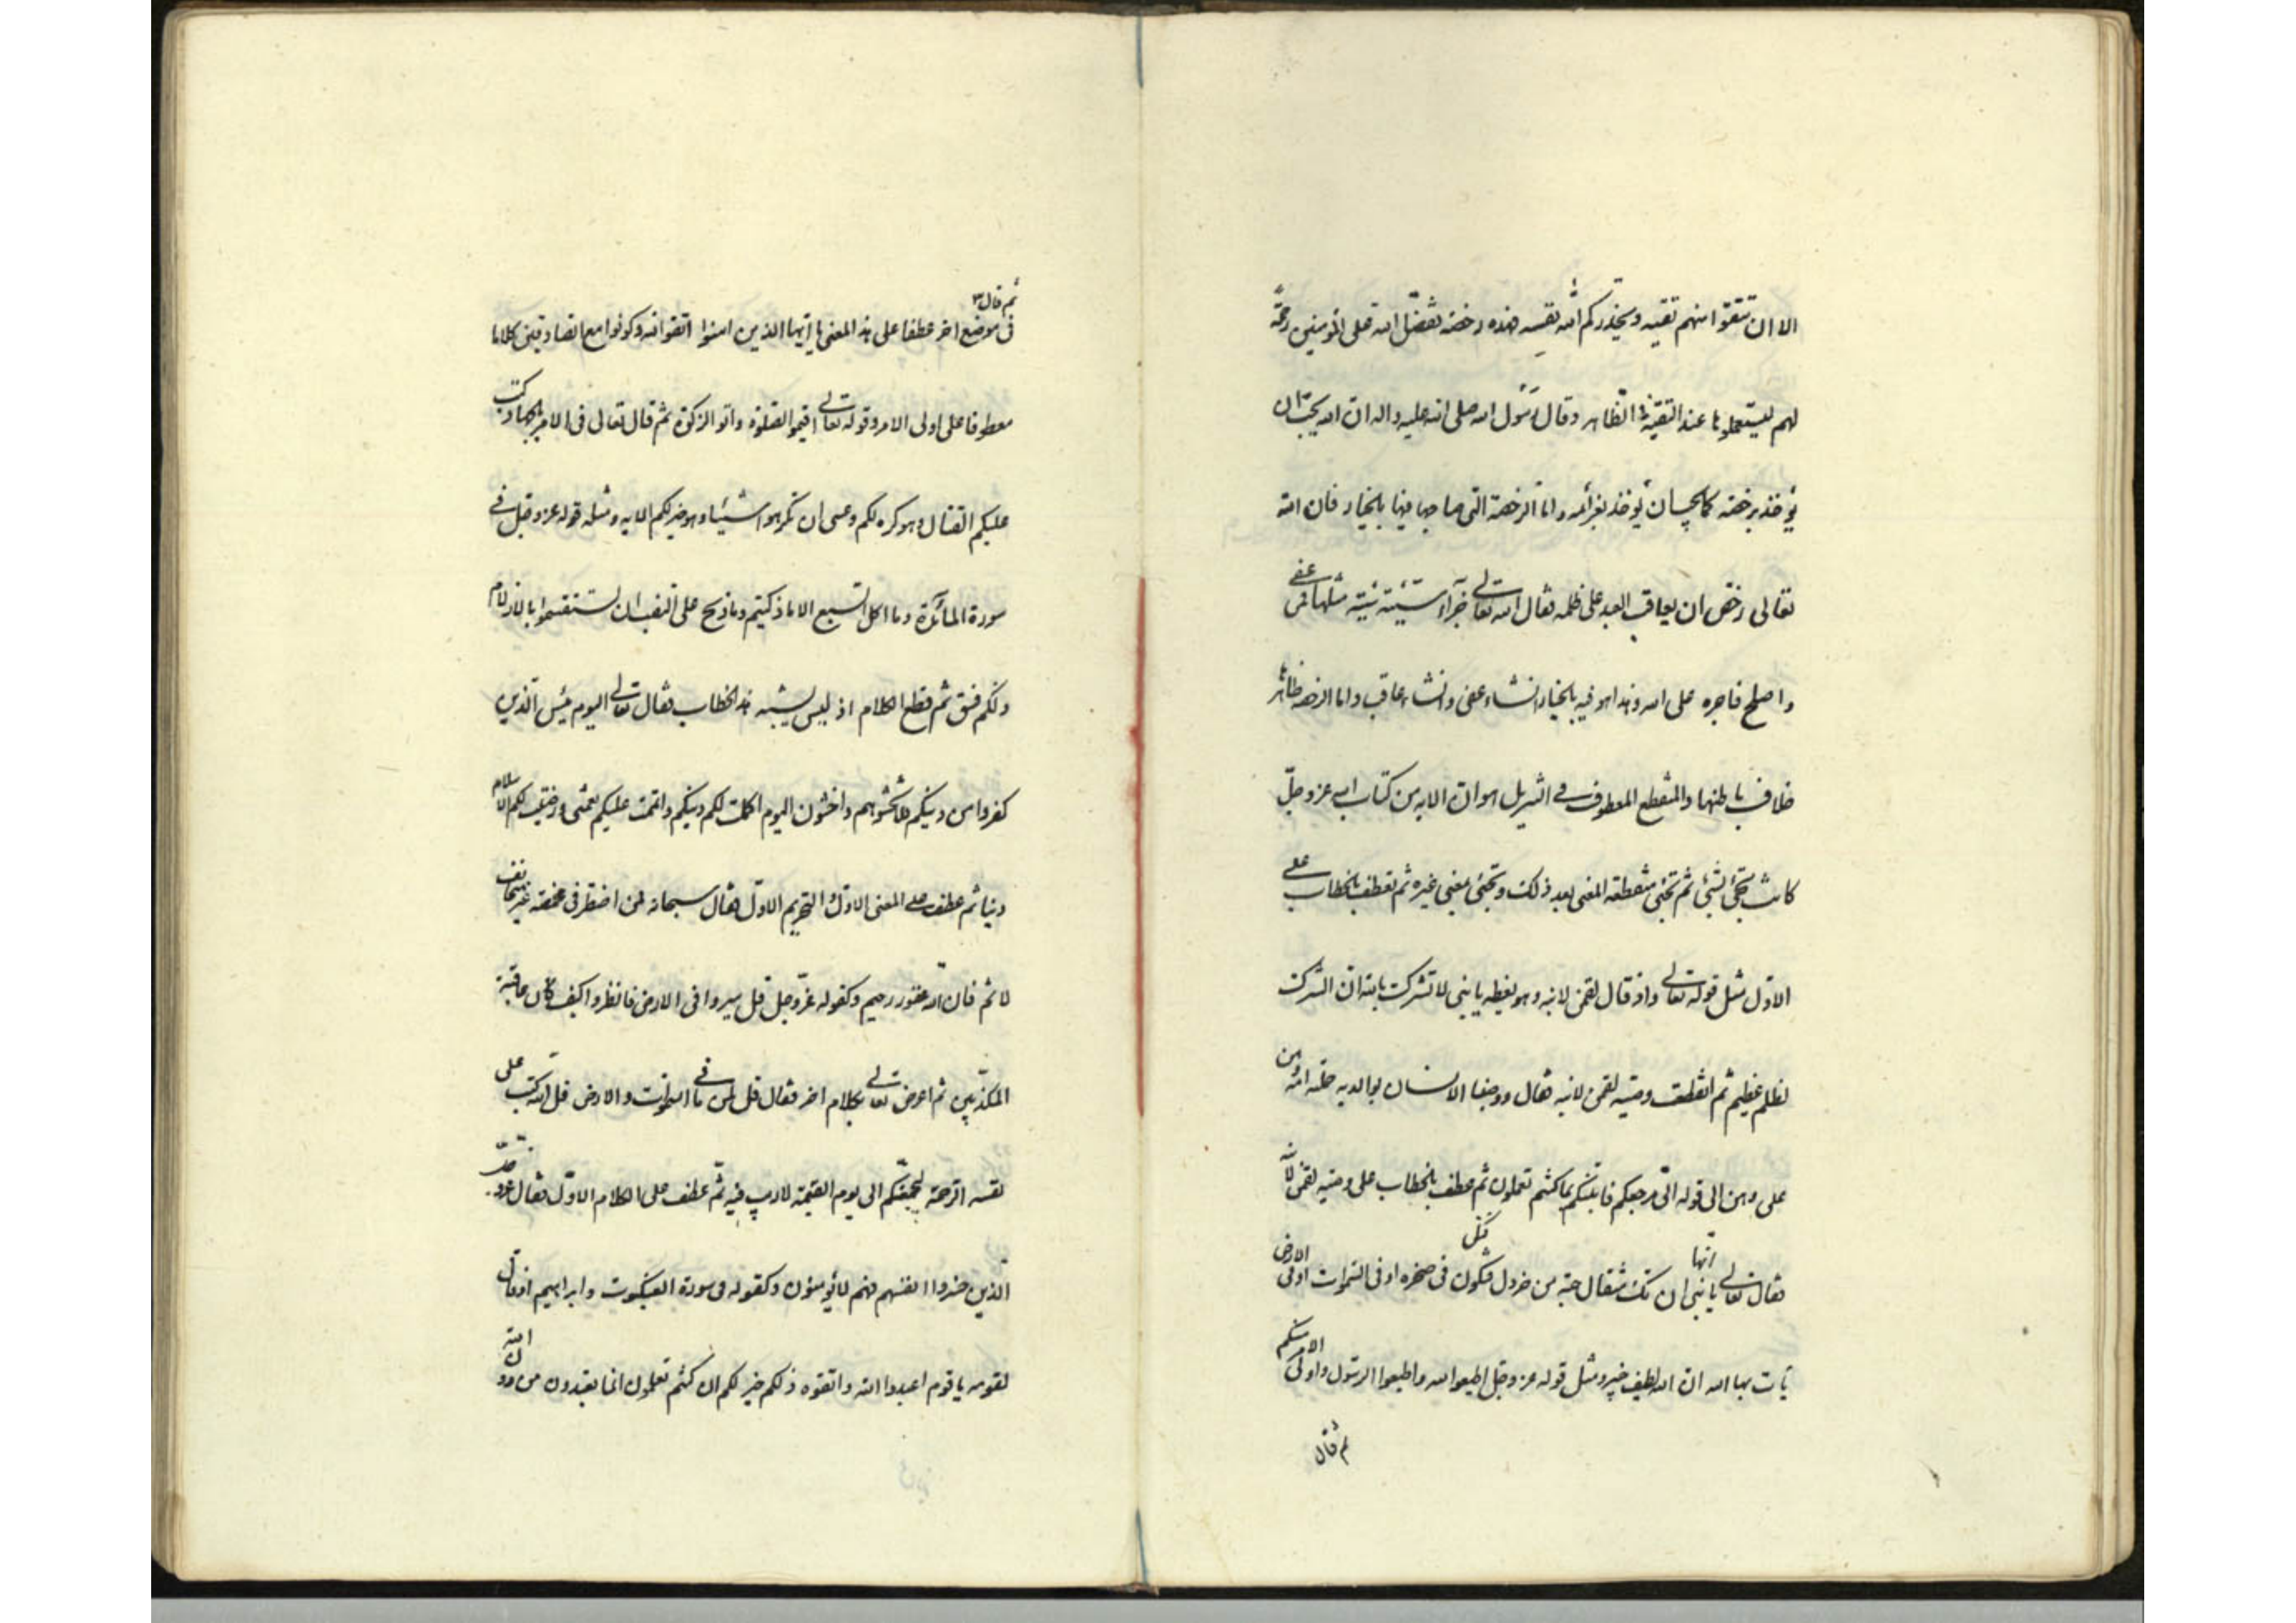 الا ان تتقوا منهم تقیه ویحذرکم الله نفسه فهذه رخصة تفضل الله على المومنین رحمة
لهم لیستعملوها عند التقیة فی الظاهر وقال رسول الله صلى الله علیه واله ان الله یحب ان
یؤخذ برخصه کما یحب ان یؤخذ بعزائمه واما الرخصة التی صاحبها فیها بالخیار فان الله
تعالى رخص ان یعاقب العبد على ظلمه فقال الله تعالى جزآء سیئة سیئة مثلها فمن عفى
واصلح فاجره على الله وهذا هو فیه بالخیار انشاء عفى وانشاء عاقب واما الرخصه ظاهرها
خلاف باطنها والمنقطع المعطوف فی التنزیل هو ان الایه من کتاب الله عز وجل
کانت تجئ بشئ ثم تجئ منقطعة المعنى بعد ذلک وتجئ بمعنى غیره ثم تعطف بالخطاب على
الاول مثل قوله تعالى واذ قال لقمن لابنه وهو یعظه یا بنی لا تشرک بالله ان الشرک
لظلم عظیم ثم انقطعت وصیة لقمن لابنه فقال ووصینا الانسان بوالدیه حملته امه وهن
على وهن الى قوله الی مرجعکم فانبئکم بما کنتم تعملون ثم عطف بالخطاب على وصیه لقمن لابنه
فقال تعالى یا بنی انها ان تک مثقال حبة من خردل فتکن فی صخره او فی السموات او فی الارض
یات بها الله ان الله لطیف خبیر ومثل قوله عز وجل اطیعوا الله واطیعوا الرسول واولى الامر منکم
ثم قال
ثم قال
فی موضع اخر عطفا على هذا المعنى یا ایها الذین امنوا اتقوا الله وکونوا مع الصادقین کلاما
معطوفا على اولى الامر وقوله تعالى اقیموا الصلوة واتو الزکوة ثم قال تعالى فی الامر بالجهاد کتب
علیکم القتال وهو کره لکم وعسى ان تکرهوا شیئا وهو خیر لکم الایه ومثله قوله عز وجل فی
سورة المائدة وما اکل السبع الا ما ذکیتم وما ذبح على النصب وان تستقسموا بالازلام
ذلکم فسق ثم قطع الکلام اذ لیس یشبه هذا الخطاب فقال تعالى الیوم یئس الذین
کفروا من دینکم فلا تخشوهم واخشون الیوم اکملت لکم دینکم واتممت علیکم نعمتی ورضیت لکم الاسلام
دینا ثم عطف على المعنى الاول والتحریم الاول فقال سبحانه فمن اضطر فی مخمصة غیر متجانف
لاثم فان الله غفور رحیم وکقوله عز وجل قل سیروا فی الارض فانظروا کیف کان عاقبة
المکذبین ثم اعرض تعالى بکلام اخر فقال قل لمن ما فی السموات والارض قل لله کتب على
نفسه الرحمة لیجمعنکم الى یوم القیمة لا ریب فیه ثم عطف على الکلام الاول فقال عز وجل
الذین خسروا انفسهم فهم لا یؤمنون وکقوله فی سورة العنکبوت وابراهیم اذ قال
لقومه یا قوم اعبدوا الله واتقوه ذلکم خیر لکم ان کنتم تعلمون انما تعبدون من دون الله